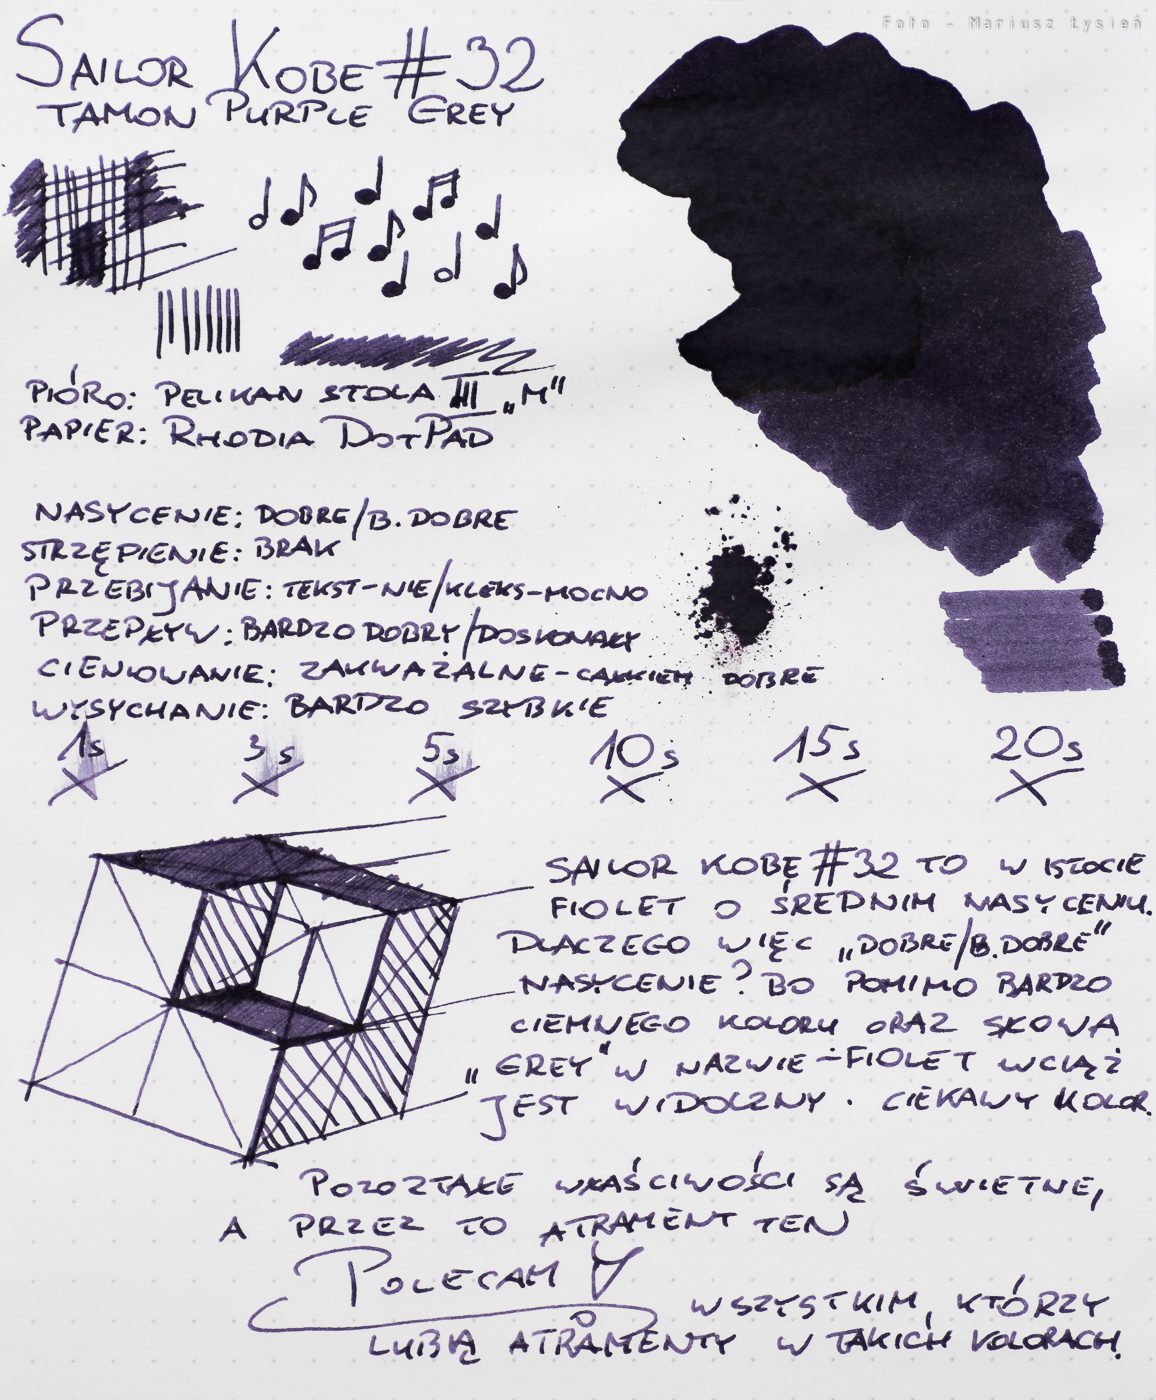 Foto - Mariusz Łysień
SAILOR KOBE #32
TAMON PURPLE GREY
PIÓRO: PELIKAN STOLA III „M"
PAPIER: RHODIA DOTPAD
NASYCENIE: DOBRE/B. DOBRE
STRZĘPIENIE: BRAK
PRZEBIJANIE: TEKST-NIE/KLEKS-MOCNO
PRZEPŁYW: BARDZO DOBRY/DOSKONAŁY
CIENIOWANIE: ZAUWAŻALNE-CAŁKIEM DOBRE
WYSYCHANIE: BARDZO SZYBKIE
1s 3s 5s 10s 15s 20s
SAILOR KOBE #32 TO W ISTOCIE
FIOLET O ŚREDNIM NASYCENIU.
DLACZEGO WIĘC „DOBRE/B.DOBRE"
NASYCENIE? BO POMIMO BARDZO
CIEMNEGO KOLORU ORAZ SŁOWA
„GREY" W NAZWIE - FIOLET WCIĄŻ
JEST WIDOCZNY. CIEKAWY KOLOR.
POZOSTAŁE WŁAŚCIWOŚCI SĄ ŚWIETNE,
A PRZEZ TO ATRAMENT TEN
POLECAM !
WSZYSTKIM, KTÓRZY
LUBIĄ ATRAMENTY W TAKICH KOLORACH.